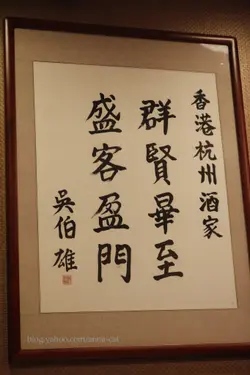 香港杭州酒家
群賢畢至
盛客盈門
吳伯雄